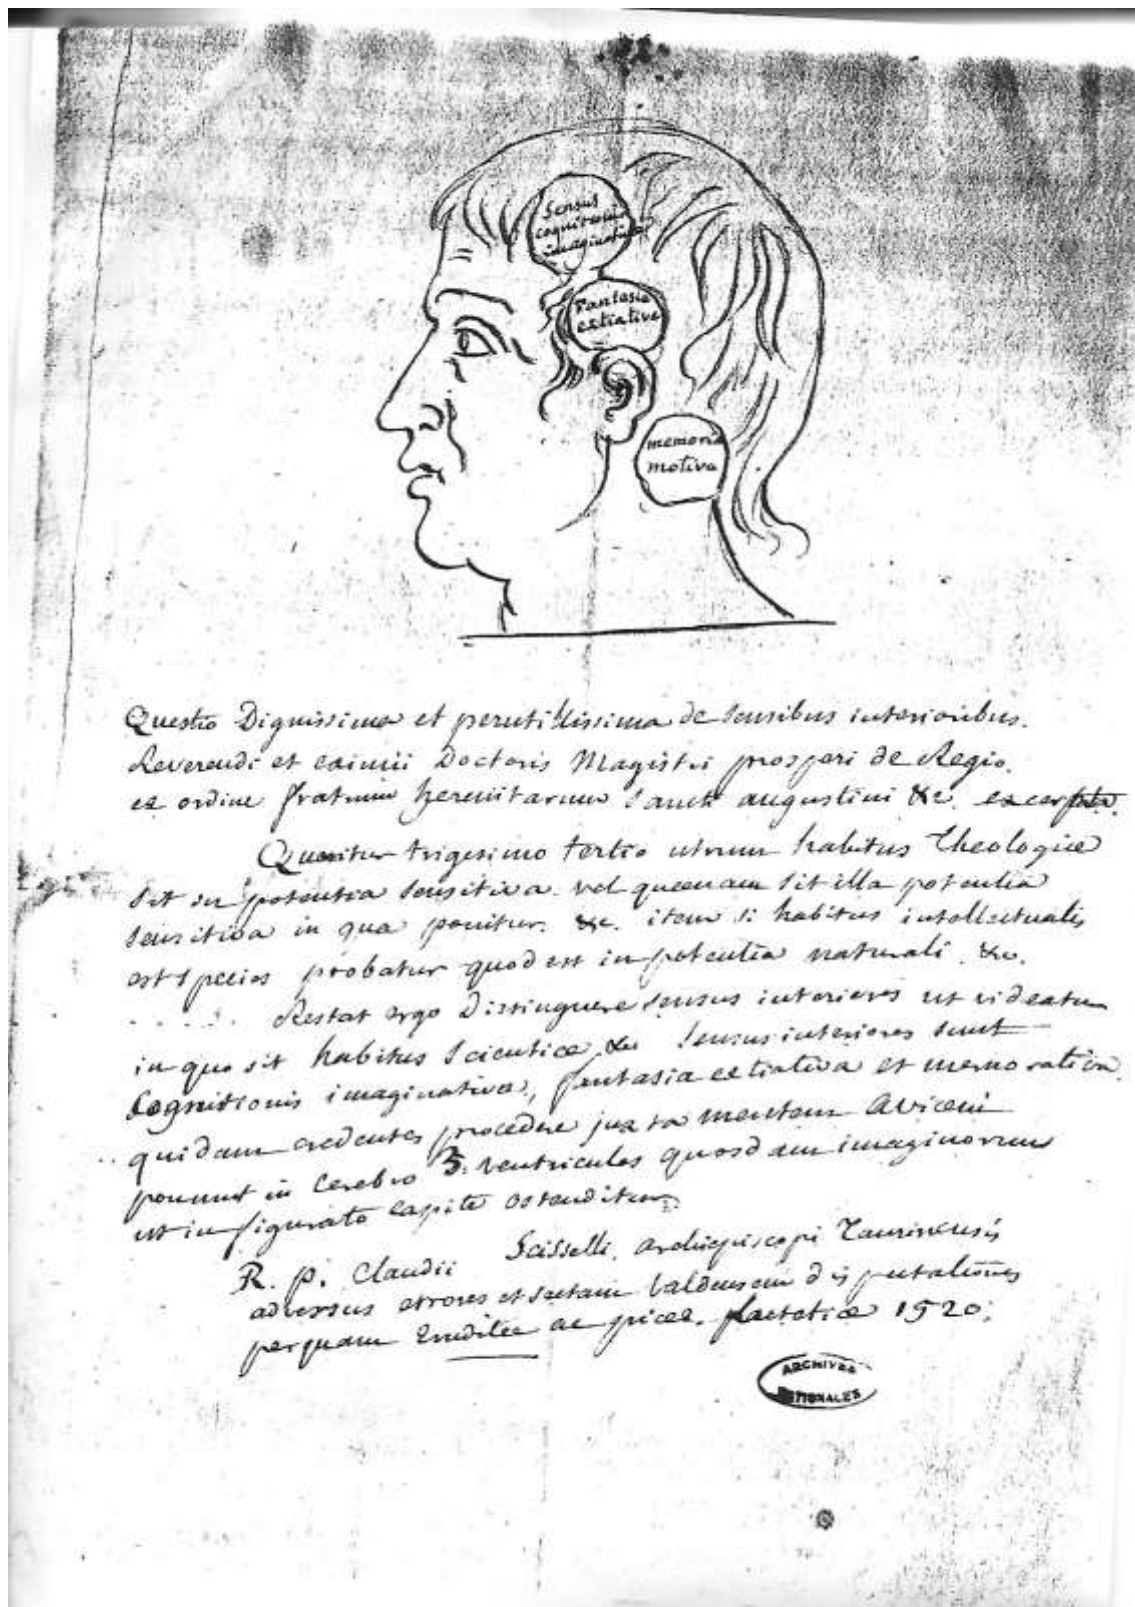 Sensus
cognitionis
imaginativa
Fantasia
extiativa
memoria
motiva
Questio Dignissima et perutillissima de sensibus interioribus.
Reverendi et eximii Doctoris Magistri prosperi de Regio.
ex ordine fratrum heremitarum Sancti augustini &c. excerpta.
Queritur trigesimo tertio utrum habitus Theologiæ
sit in potentia sensitiva vel quænam sit illa potentia
sensitiva in qua ponitur. &c. item si habitus intellectualis
est species probatur quod est in potentia naturali. &c.
..... Restat ergo Distinguere sensus interiores ut videatur
in quo sit habitus Scientiæ &c sensus interiores sunt
Cognitionis imaginativa, fantasia extiativa et memorativa.
.. quidam credentes procedere juxta mentem Aviceni
ponunt in Cerebro 3. ventriculos quosdam imaginorum
ut in figurato capite ostenditur.
R. P. Claudii Scisselli, archiepiscopi Taurinensis
adversus errores et sectam Valdensem disputationes
perquam Eruditæ ac piæ. 1520.
ARCHIVES
NATIONALES